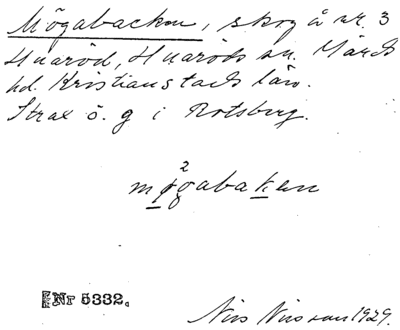 Mögabacken, skog å nr. 3
Huaröd, Huaröds sn. Gärds
hd. Kristianstads län.
Strax ö. g i Rotsberg.
2
møgabakan
Nr 5332.
Nils Nilsson 1929.